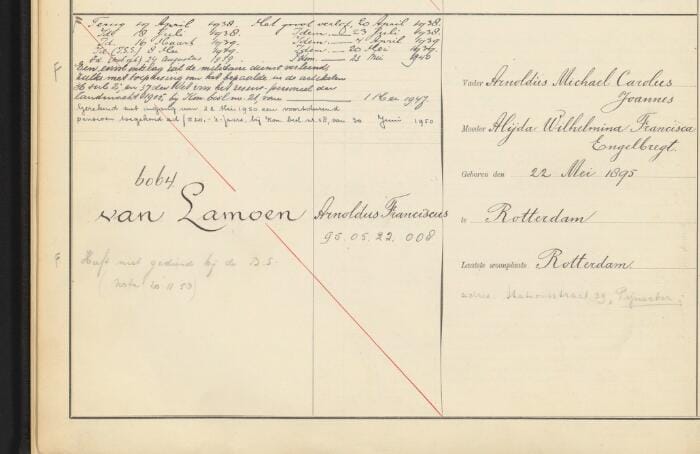 Terug 19 April 1938. Met groot verlof, 20 April 1938.
Id. 18 Juli 1938. Idem 23 Juli 1938.
Id. 16 Maart 1939. Idem 7 April 1939.
Id. 8 Mei 1939. Idem 20 Mei
Id. 29 Augustus 1939. Idem 25 Mei 1940
Eervol ontslag uit de militaire dienst verleend
zulks met toepassing van het bepaalde in de artikelen
36 en 37 der Wet voor het reserve-personeel der
Landmacht 1905, bij Kon besl no. 21 van 1 Mei 1947
Gerekend met ingang van 22 Mei 1950 een voortdurend
pensioen toegekend ad bij Kon besl no. 58, van 30 Juni 1950
F
6064
van Lamoen
Arnoldus Franciscus
95.05.22.008
F
Heeft niet gediend bij de B.S.
(nota 20.11.53)
Vader Arnoldus Michael Carolus
Joannes
Moeder Alijda Wilhelmina Francisca
Engelbregt.
Geboren den 22 Mei 1895
te Rotterdam
Laatste woonplaats Rotterdam.
adres: Stationsstraat 39, Pijnacker.